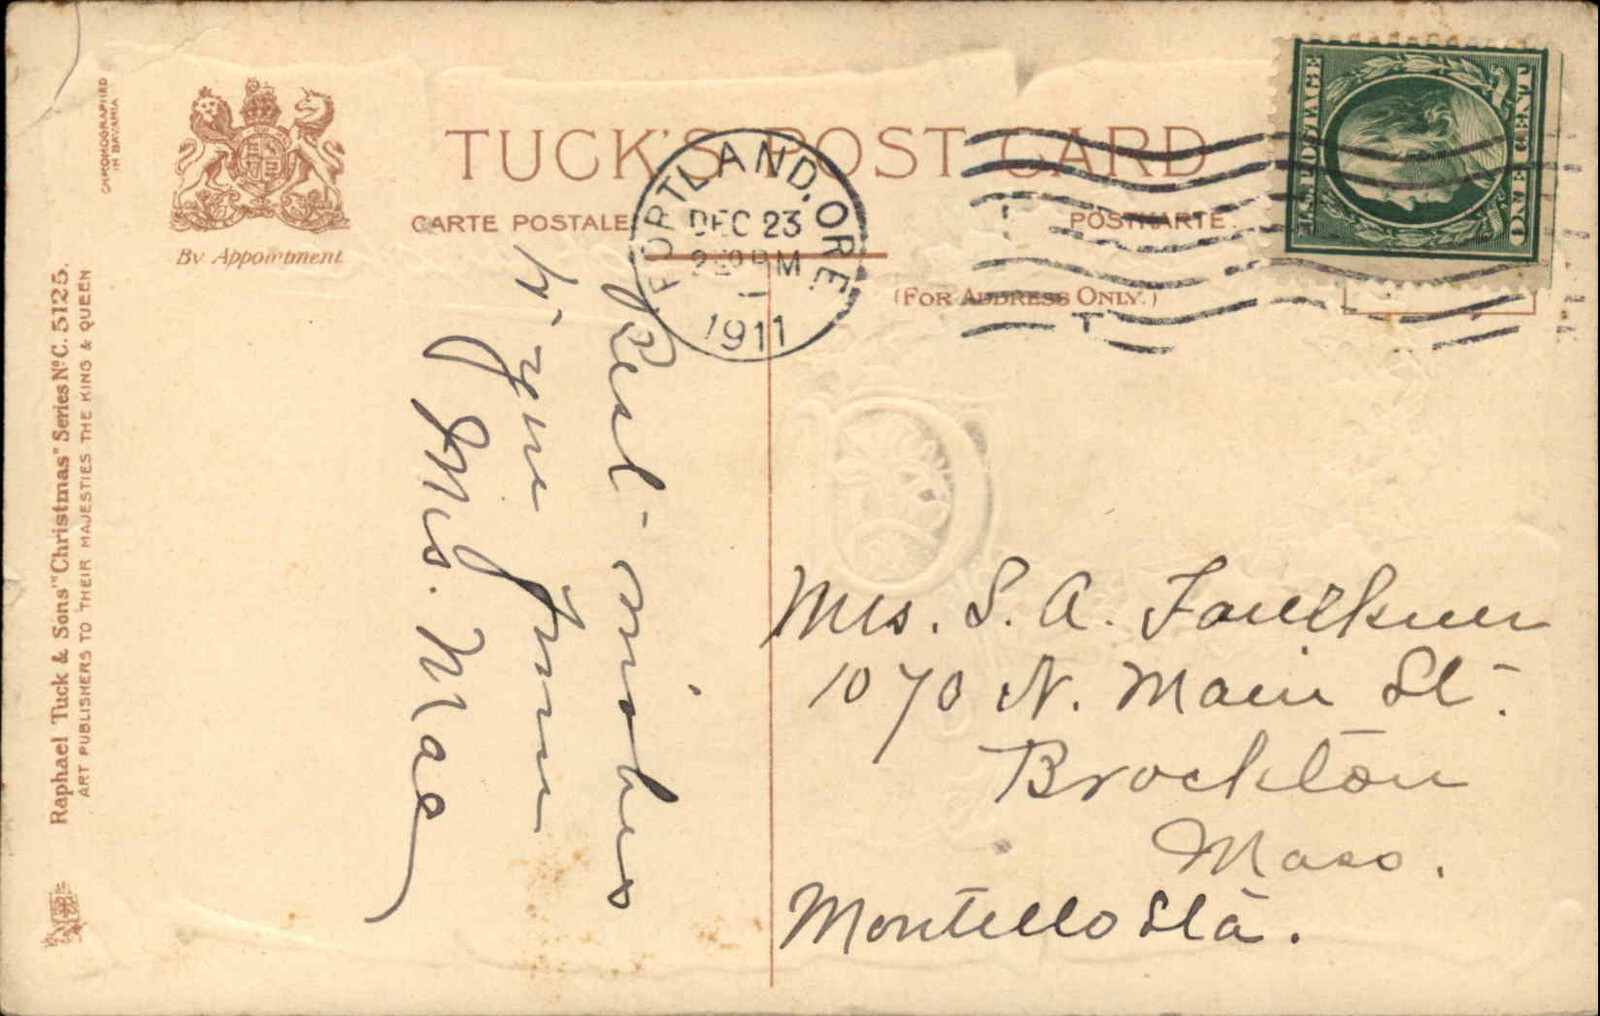 CHROMOGRAPHED
IN BAVARIA
TUCK'S POST CARD
CARTE POSTALE
POSTKARTE
By Appointment
(FOR ADDRESS ONLY.)
PORTLAND, ORE.
DEC 23
PM
1
1911
U.S. POSTAGE
ONE CENT
Raphael Tuck & Sons' "Christmas" Series Nº C. 5125.
ART PUBLISHERS TO THEIR MAJESTIES THE KING & QUEEN
Best wishes
from
Mrs. Mae
Mrs. S. A. Faulkner
1070 N. Main St.
Brockton
Mass.
Montello Sta.